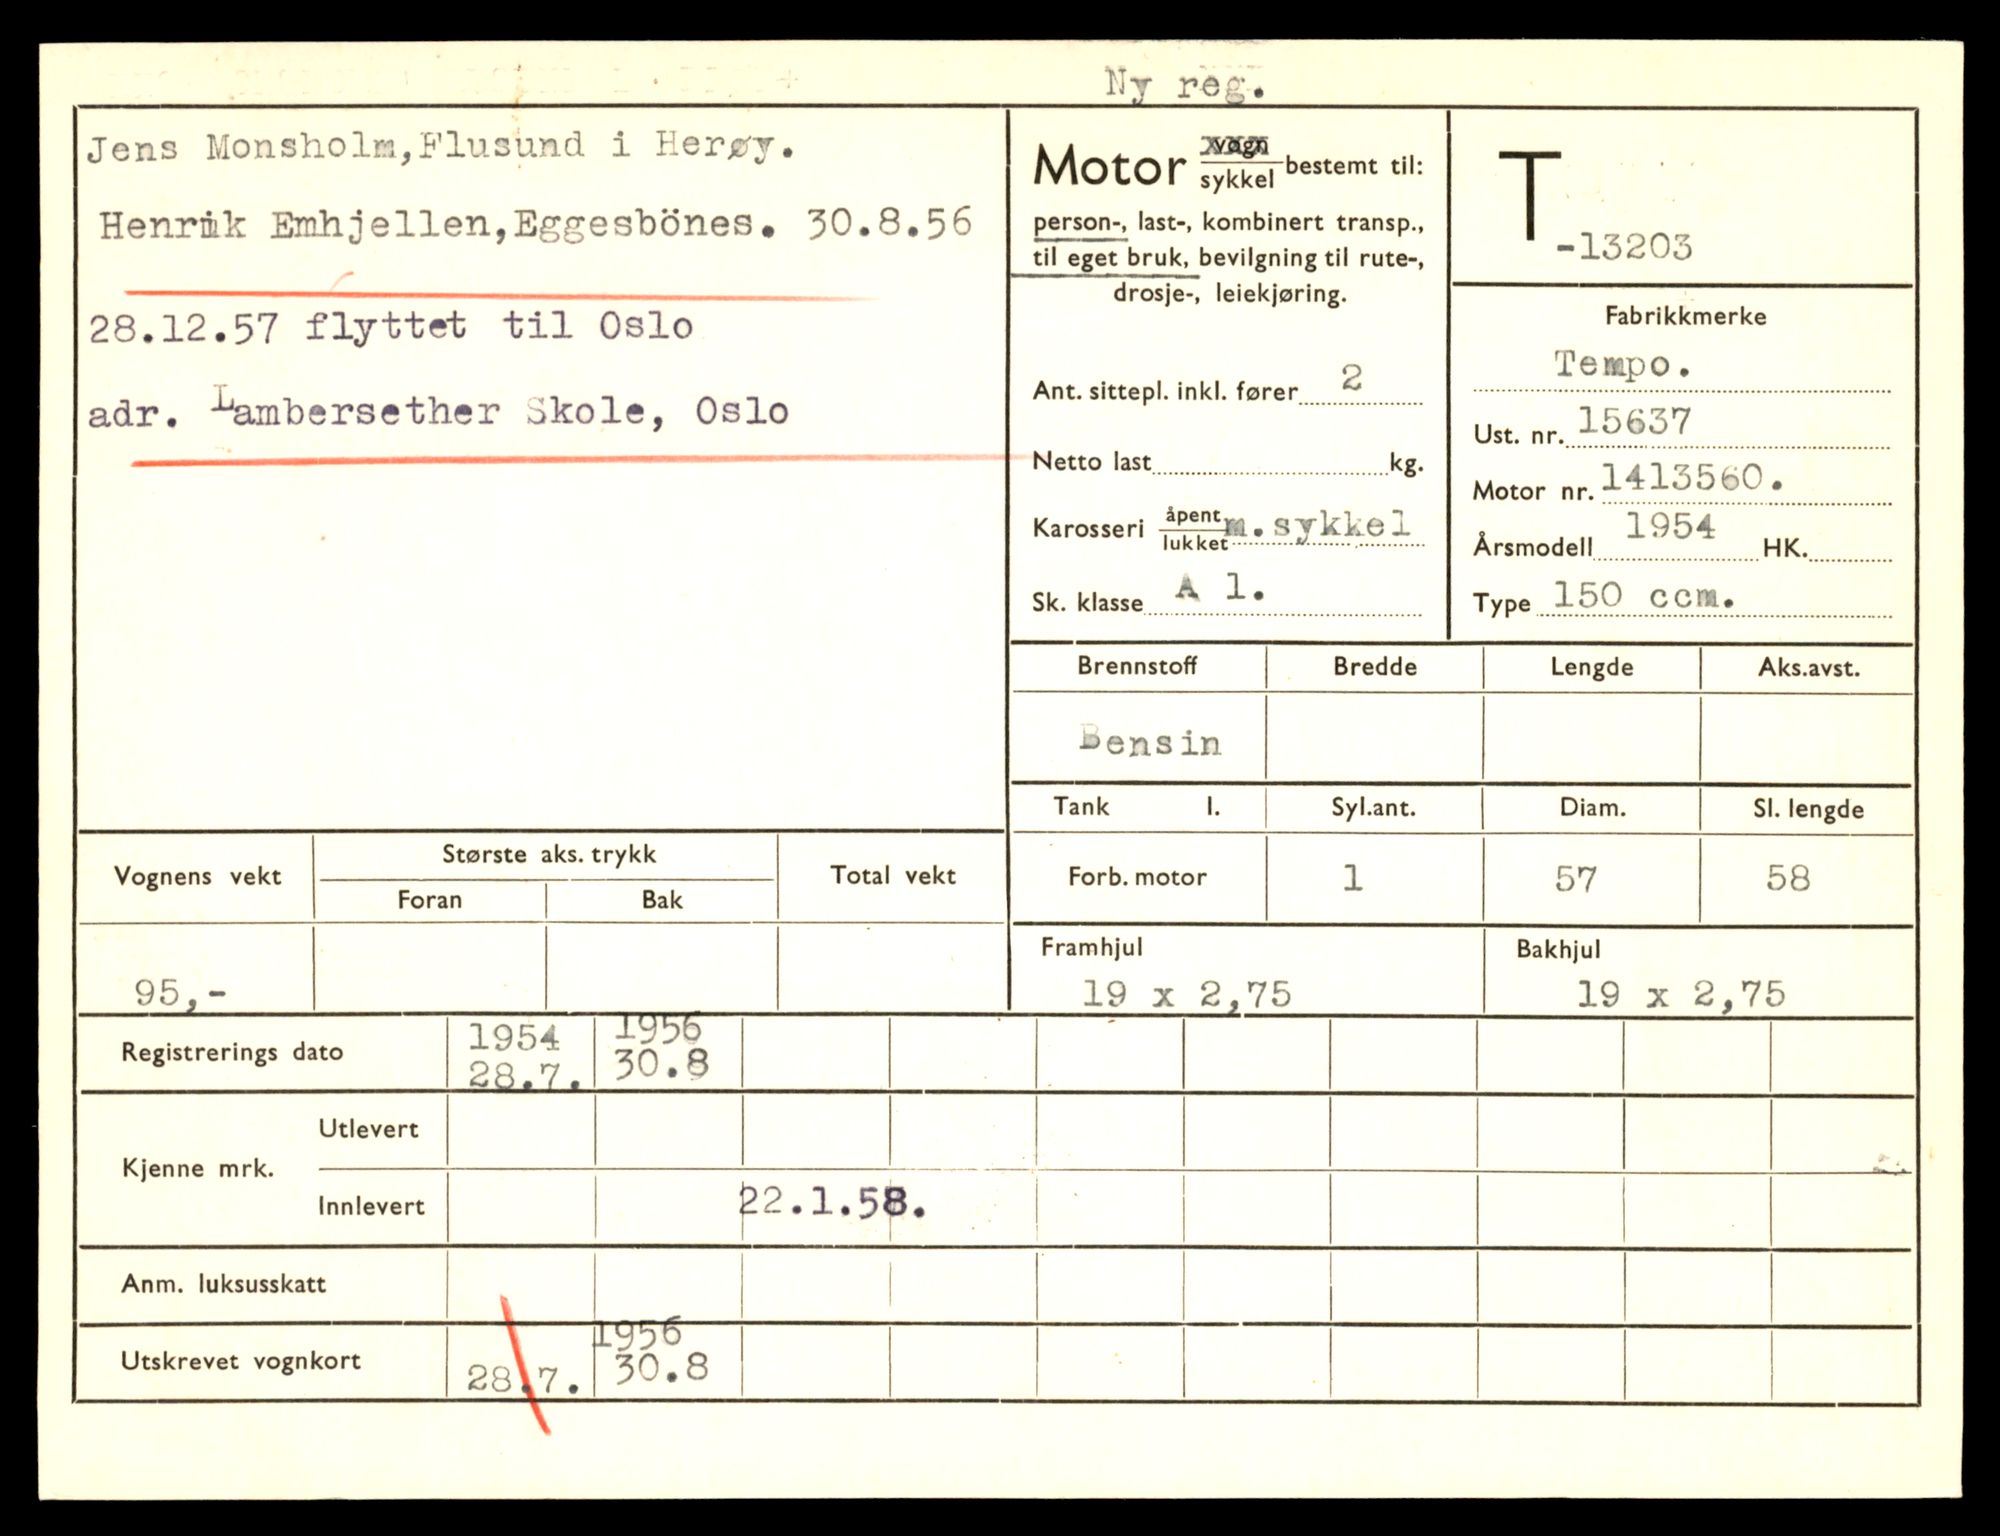 Ny reg.
Jens Monsholm,Flusund i Herøy.
Henrik Emhjellen,Eggesbönes. 30.8.56
28.12.57 flyttet til Oslo
adr. Lambersether Skole, Oslo
Motor vogn/sykkel bestemt til:
person-, last-, kombinert transp.,
til eget bruk, bevilgning til rute-,
drosje-, leiekjøring.
Ant. sittepl. inkl. fører 2
Netto last kg.
Karosseri åpent/lukket m.sykkel
Sk. klasse A 1.
T-13203
Fabrikkmerke
Tempo.
Ust. nr. 15637
Motor nr. 1413560.
Årsmodell 1954 HK.
Type 150 ccm.
Brennstoff Bredde Lengde Aks.avst.
Bensin
Tank l. Syl.ant. Diam. Sl. lengde
Forb. motor 1 57 58
Framhjul Bakhjul
19 x 2,75 19 x 2,75
Vognens vekt Største aks. trykk Total vekt
Foran Bak
95,-
Registrerings dato 1954 1956
28.7. 30.8
Kjenne mrk.
Utlevert
Innlevert 22.1.58.
Anm. luksusskatt
Utskrevet vognkort 1956
28.7. 30.8